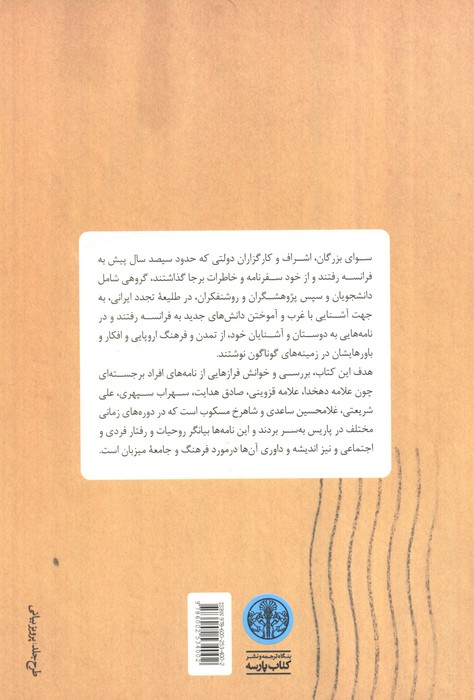 سـوای بزرگان، اشـراف و کارگزاران دولتی که حدود سیصد سال پیش به
فرانسـه رفتند و از خود سـفرنامه و خاطرات برجا گذاشـتند، گروهی شامل
دانشجویان و سپس پژوهشـگران و روشنفکران، در طلیعهٔ تجدد ایرانی، به
جهت آشـنایی با غرب و آموختن دانش‌های جدید به فرانسـه رفتند و در
نامه‌هایی به دوستان و آشنایان خود، از تمدن و فرهنگ اروپایی و افکار و
باورهایشان در زمینه‌های گوناگون نوشتند.
هدف این کتاب، بررسی و خوانش فرازهایی از نامه‌های افراد برجسته‌ای
چون علامه دهخدا، علامه قزوینی، صادق هدایت، سهراب سپهری، علی
شریعتی، غلامحسین ساعدی و شاهرخ مسکوب است که در دوره‌های زمانی
مختلف در پاریس به‌سر بردند و این نامه‌ها بیانگر روحیات و رفتار فردی و
اجتماعی و نیز اندیشه و داوری آن‌ها درمورد فرهنگ و جامعهٔ میزبان است.
بنگاه ترجمه و نشر
کتاب پارسه
طرح جلد: پرویز بیانی